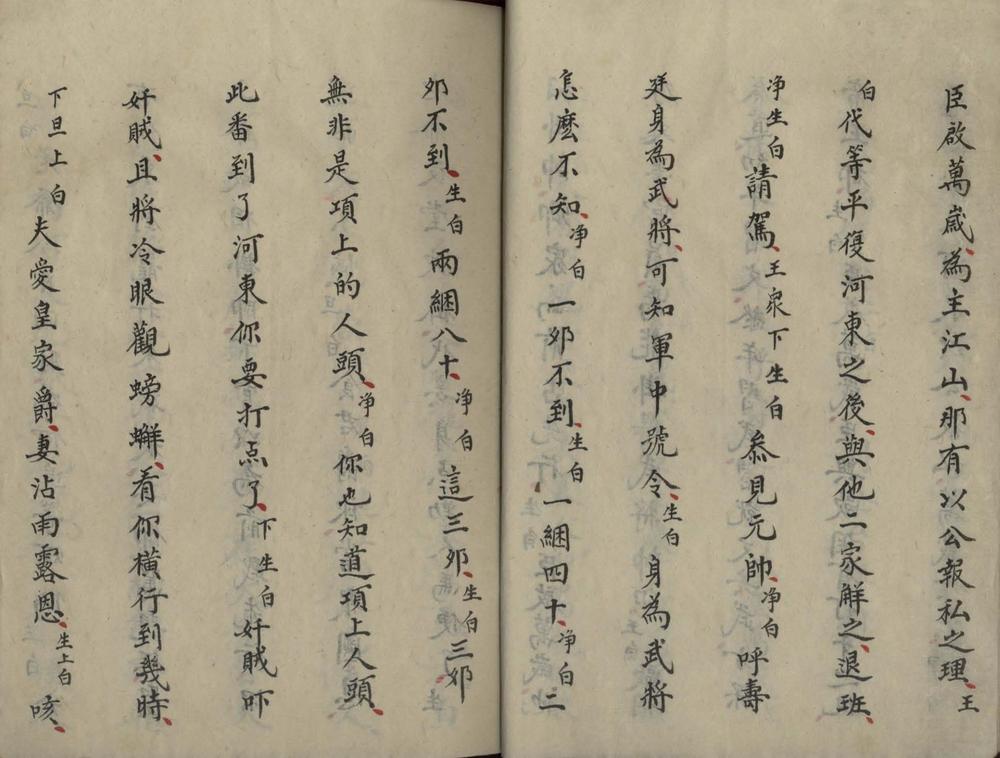 臣啟萬歲、為主江山、那有以公報私之理、王
白代等平復河東之後、與他二家解之、退班、
净生白請駕、王衆下生白叅見元帥、净白呼壽
廷身為武將、可知軍中號令、生白身為武將
怎麽不知、净白一夘不到、生白一綑四十、净白二
夘不到、生白兩綑八十、净白這三夘、生白三夘
無非是項上的人頭、净白你也知道項上人頭、
此番到了河東你要打点了、下生白奸賊吓
奸賊、且將冷眼觀螃蠏、看你橫行到幾時、
下旦上白夫愛皇家爵、妻沾雨露恩、生上白咳、